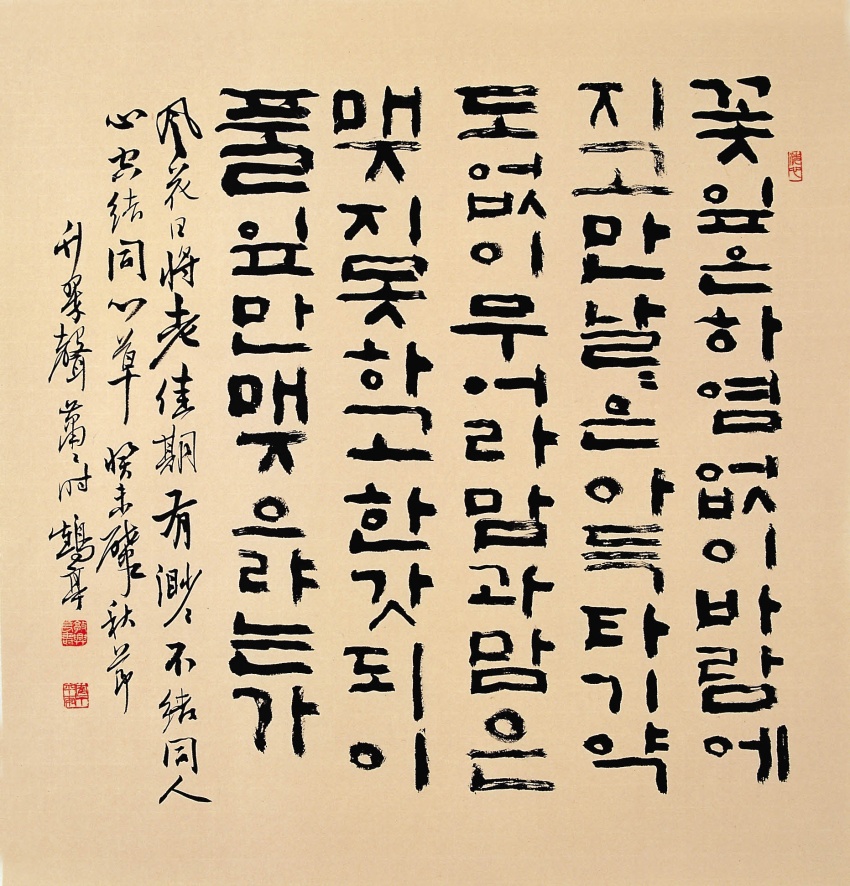 꽃잎은하염없이바람에
지고만날〃은아득타기약
도없이무어라맘과맘은
맺지못하고한갓되이
풀잎만맺으랴는가
风花日將老佳期有渺〻不結同人
心空結同心草 癸未肇秋节
翠聲蕭〻时 鶴亭